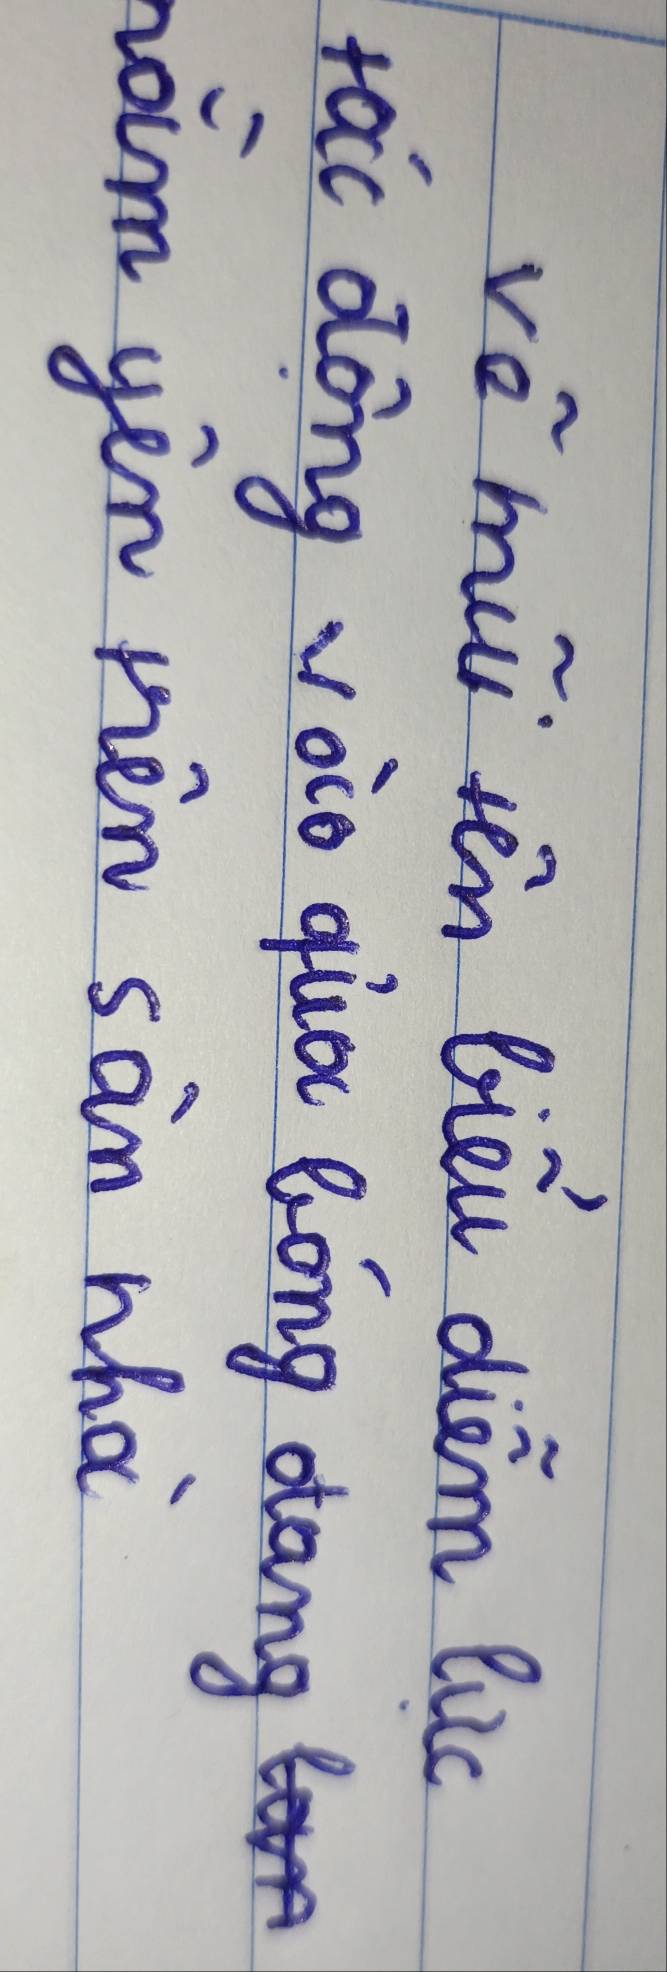 vẽ mũi tên biểu diễm lực
tác động vào qủa bóng đang
nằm yên trên sàn nhà